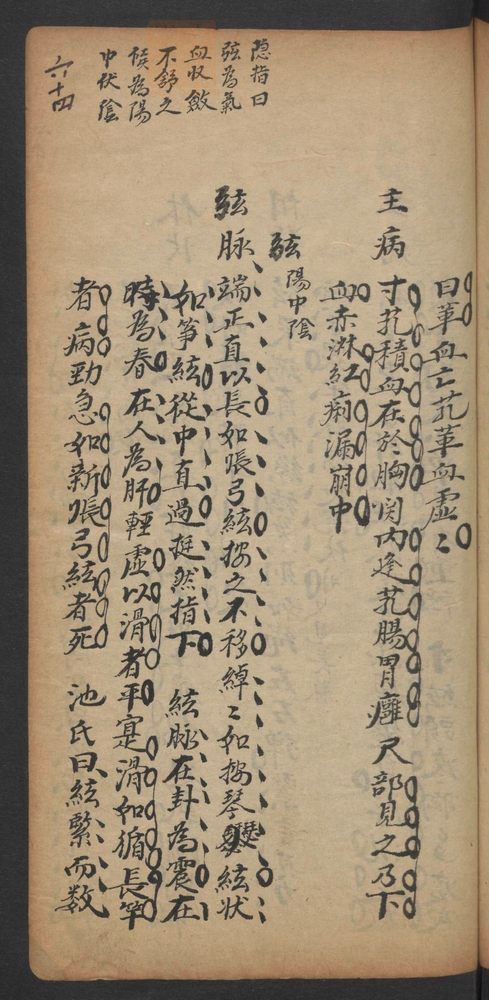 隠指曰
弦為氣
血收斂
不舒之
候為陽
中伏陰
六十四
曰革血亡芤革血虛〻
主病 寸芤積血在於胸関内逢芤腸胃癰尺部見之乃下
血赤淋紅痢漏崩中
弦 陽中陰
弦脉端正直以長如張弓絃按之不移綽〻如按琴瑟絃状
如箏絃從中直過挺然指下 絃脉在卦為震在
時為春在人為肝輕虛以滑者平寔滑如循長竿
者病勁急如新張弓絃者死 池氏曰絃緊而数